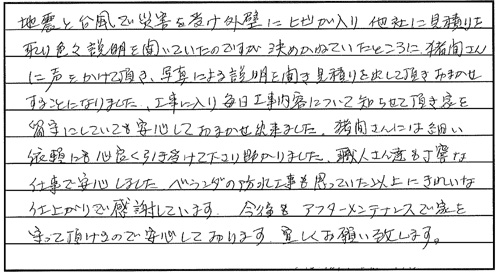 地震と台風で災害を受け外壁にヒビが入り他社に見積りを
取り色々説明を聞いていたのですが決めかねていたところに、猪間さん
に声をかけて頂き、写真による説明を聞き見積りを出して頂きおまかせ
することになりました。工事に入り毎日工事内容について知らせて頂き家を
留守にしていても安心しておまかせ出来ました。猪間さんには細い
依頼にも心良く引き受けて下さり助かりました。職人さん達も丁寧な
仕事で安心しました。ベランダの防水工事も思っていた以上にきれいな
仕上がりで感謝しています。今後もアフターメンテナンスで家を
守って頂けるので安心しております。宜しくお願い致します。